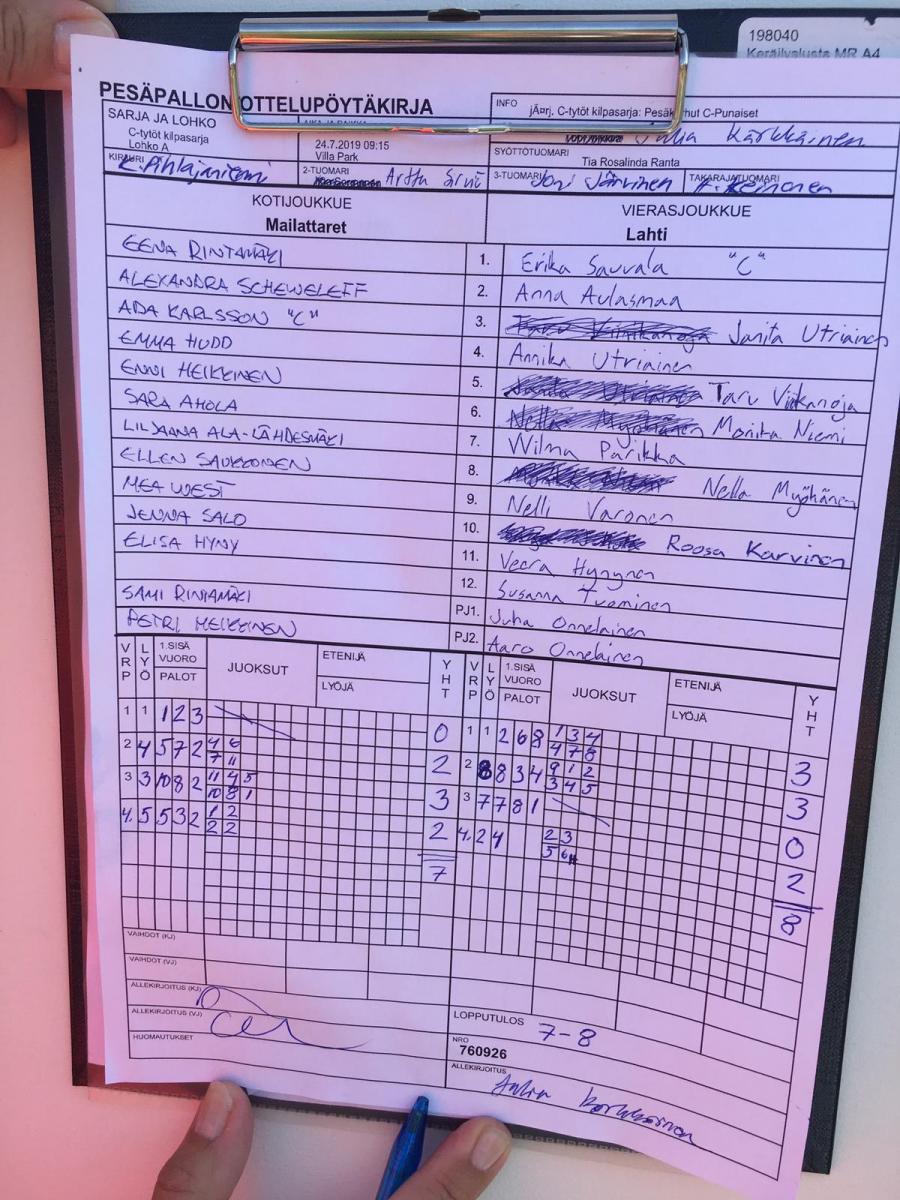 198040
Keräilyalusta MR A4
PESÄPALLON OTTELUPÖYTÄKIRJA
INFO
C-tytöt kilpasarja: C-Punaiset
SARJA JA LOHKO
C-tytöt kilpasarja
Lohko A
24.7.2019 09:15
Villa Park
Julia Kärkkäinen
SYÖTTÖTUOMARI
Tia Rosalinda Ranta
KIRJURI
2-TUOMARI Arttu
3-TUOMARI Joni Järvinen
TAKARAJATUOMARI
KOTIJOUKKUE
Mailattaret
VIERASJOUKKUE
Lahti
EENA RINTAMÄKI 1. Erika Sauvala "C"
ALEXANDRA SCHEWELEFF 2. Anna Aulasmaa
ADA KARLSSON "C" 3. Janita Utriainen
EMMA HUDD 4. Annika Utriainen
ENNI HEIKKINEN 5. Taru Viikanoja
SARA AHOLA 6. Monika Niemi
LILJAANA ALA-LÄHDESMÄKI 7. Wilma Parikka
ELLEN SAUKKONEN 8. Nella Myöhänen
MEA WEST 9. Nelli Varonen
JENNA SALO 10. Roosa Karvinen
ELISA HYNY 11. Veera Hynynen
12. Susanna Tuominen
SAMI RINTAMÄKI PJ1. Juha Onnelainen
PETRI HEIKKINEN PJ2. Aaro Onnelainen
VRP LYÖ 1.SISÄ VUORO PALOT JUOKSUT ETENIJÄ LYÖJÄ YHT VRP LYÖ 1.SISÄ VUORO PALOT JUOKSUT ETENIJÄ LYÖJÄ YHT
1 1 1 2 3 0 1 1 2 6 8 1 3 4 3
4 7 8
2 4 5 7 2 4 6 2 2 8 8 3 4 9 1 2 3
7 11 3 4 5
3 3 10 8 2 11 4 5 3 3 7 7 8 1 0
10 8 1
4. 5 5 3 2 1 2 2 4. 2 4 2 3 2
2 2 5 6
7 8
VAIHDOT (KJ)
VAIHDOT (VJ)
ALLEKIRJOITUS (KJ)
ALLEKIRJOITUS (VJ)
HUOMAUTUKSET
LOPPUTULOS 7-8
NRO
760926
ALLEKIRJOITUS
Julia Kärkkäinen